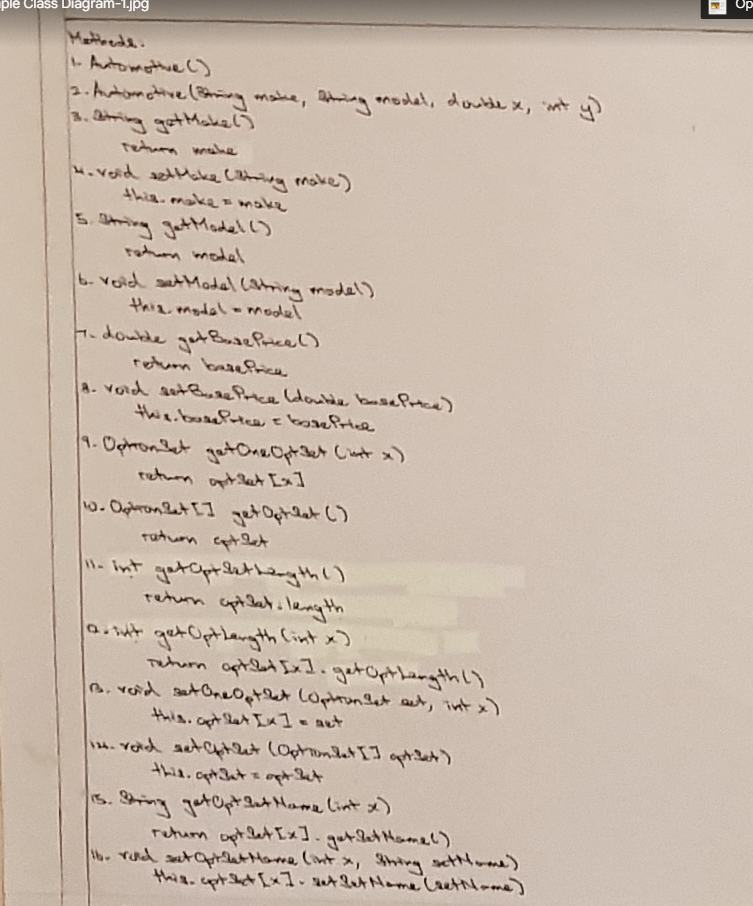 ple Class Diagram-1.jpg
Op
Methods:
1. Automotive()
2. Automotive(String make, String model, double x, int y)
3. String getMake()
return make
4. void setMake(String make)
this.make = make
5. String getModel()
return model
6. void setModel(String model)
this.model = model
7. double getBasePrice()
return basePrice
8. void setBasePrice(double basePrice)
this.basePrice = basePrice
9. OptionSet getOneOptSet(int x)
return optSet[x]
10. OptionSet[] getOptSet()
return optSet
11. int getOptSetLength()
return optSet.length
12. int getOptLength(int x)
return optSet[x].getOptLength()
13. void setOneOptSet(OptionSet set, int x)
this.optSet[x] = set
14. void setOptSet(OptionSet[] optSet)
this.optSet = optSet
15. String getOptSetName(int x)
return optSet[x].getSetName()
16. void setOptSetName(int x, String setName)
this.optSet[x].setSetName(setName)